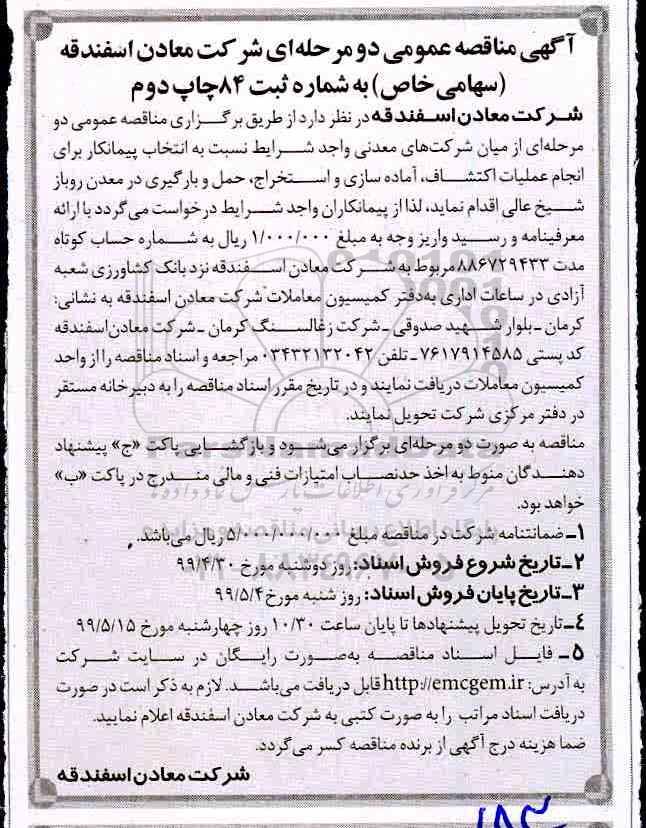 آگهی مناقصه عمومی دو مرحله‌ای شرکت معادن اسفندقه
(سهامی خاص) به شماره ثبت ۸۴ چاپ دوم
شرکت معادن اسفندقه در نظر دارد از طریق برگزاری مناقصه عمومی دو
مرحله‌ای از میان شرکت‌های معدنی واجد شرایط نسبت به انتخاب پیمانکار برای
انجام عملیات اکتشاف، آماده سازی و استخراج، حمل و بارگیری در معدن روباز
شیخ عالی اقدام نماید، لذا از پیمانکاران واجد شرایط درخواست می‌گردد با ارائه
معرفینامه و رسید واریز وجه به مبلغ ۱/۰۰۰/۰۰۰ ریال به شماره حساب کوتاه
مدت ۸۸۶۷۲۹۴۳۳ مربوط به شرکت معادن اسفندقه نزد بانک کشاورزی شعبه
آزادی در ساعات اداری به‌دفتر کمیسیون معاملات شرکت معادن اسفندقه به نشانی:
کرمان ـ بلوار شهید صدوقی ـ شرکت زغالسنگ کرمان ـ شرکت معادن اسفندقه
کد پستی ۷۶۱۷۹۱۴۵۸۵ ـ تلفن ۰۳۴۳۲۱۳۲۰۴۲ مراجعه و اسناد مناقصه را از واحد
کمیسیون معاملات دریافت نمایند و در تاریخ مقرر اسناد مناقصه را به دبیرخانه مستقر
در دفتر مرکزی شرکت تحویل نمایند.
مناقصه به صورت دو مرحله‌ای برگزار می‌شود و بازگشایی پاکت «ج» پیشنهاد
دهندگان منوط به اخذ حدنصاب امتیازات فنی و مالی مندرج در پاکت «ب»
خواهد بود.
۱ـ ضمانتنامه شرکت در مناقصه مبلغ ۵/۰۰۰/۰۰۰/۰۰۰ ریال می‌باشد.
۲ـ تاریخ شروع فروش اسناد: روز دوشنبه مورخ ۹۹/۴/۳۰
۳ـ تاریخ پایان فروش اسناد: روز شنبه مورخ ۹۹/۵/۴
۴ـ تاریخ تحویل پیشنهادها تا پایان ساعت ۱۰/۳۰ روز چهارشنبه مورخ ۹۹/۵/۱۵
۵ـ فایل اسناد مناقصه به‌صورت رایگان در سایت شرکت
به آدرس: http://emcgem.ir قابل دریافت می‌باشد. لازم به ذکر است در صورت
دریافت اسناد مراتب را به صورت کتبی به شرکت معادن اسفندقه اعلام نمایید.
ضما هزینه درج آگهی از برنده مناقصه کسر می‌گردد.
شرکت معادن اسفندقه